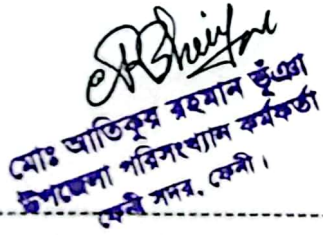 মোঃ আতিকুর রহমান ভূঁঞা
উপজেলা পরিসংখ্যান কর্মকর্তা
ফেনী সদর, ফেনী।